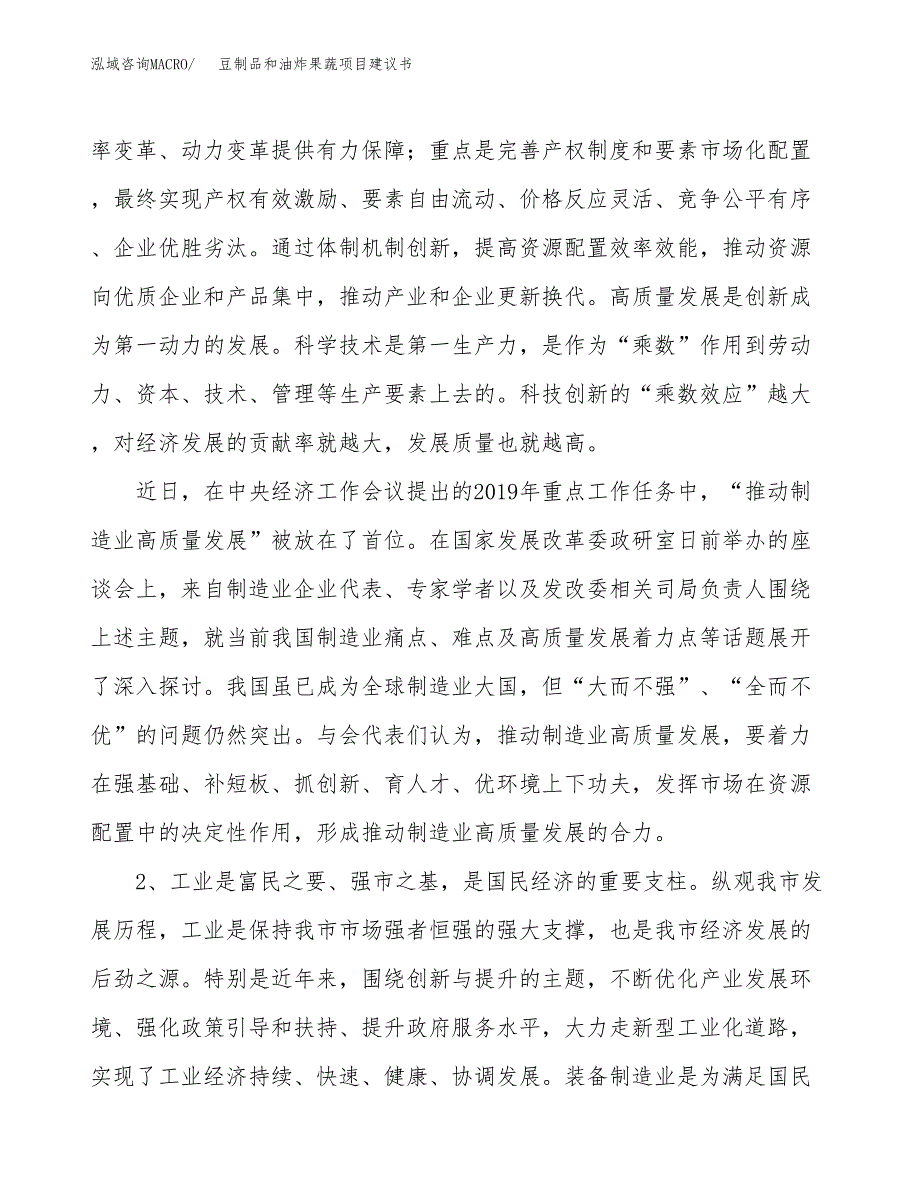 泓域咨询MACRO/ 豆制品和油炸果蔬项目建议书
率变革、动力变革提供有力保障；重点是完善产权制度和要素市场化配置
，最终实现产权有效激励、要素自由流动、价格反应灵活、竞争公平有序
、企业优胜劣汰。通过体制机制创新，提高资源配置效率效能，推动资源
向优质企业和产品集中，推动产业和企业更新换代。高质量发展是创新成
为第一动力的发展。科学技术是第一生产力，是作为“乘数”作用到劳动
力、资本、技术、管理等生产要素上去的。科技创新的“乘数效应”越大
，对经济发展的贡献率就越大，发展质量也就越高。
近日，在中央经济工作会议提出的2019年重点工作任务中，“推动制
造业高质量发展”被放在了首位。在国家发展改革委政研室日前举办的座
谈会上，来自制造业企业代表、专家学者以及发改委相关司局负责人围绕
上述主题，就当前我国制造业痛点、难点及高质量发展着力点等话题展开
了深入探讨。我国虽已成为全球制造业大国，但“大而不强”、“全而不
优”的问题仍然突出。与会代表们认为，推动制造业高质量发展，要着力
在强基础、补短板、抓创新、育人才、优环境上下功夫，发挥市场在资源
配置中的决定性作用，形成推动制造业高质量发展的合力。
2、工业是富民之要、强市之基，是国民经济的重要支柱。纵观我市发
展历程，工业是保持我市市场强者恒强的强大支撑，也是我市经济发展的
后劲之源。特别是近年来，围绕创新与提升的主题，不断优化产业发展环
境、强化政策引导和扶持、提升政府服务水平，大力走新型工业化道路，
实现了工业经济持续、快速、健康、协调发展。装备制造业是为满足国民